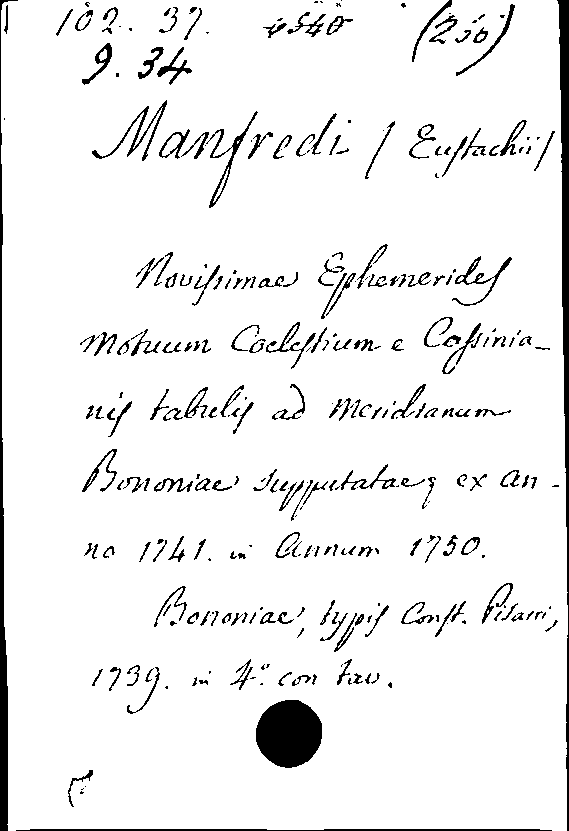 102. 37. 6540 (250)
9. 34
Manfredi / Eustachii /
Novissimae Ephemerides
motuum Coelestium e Cassinia-
nis tabulis ad meridianum
Bononiae supputatae; ex an-
no 1741. in Annum 1750.
Bononiae, typis Const. Pisarri,
1739. in 4.° con tav.